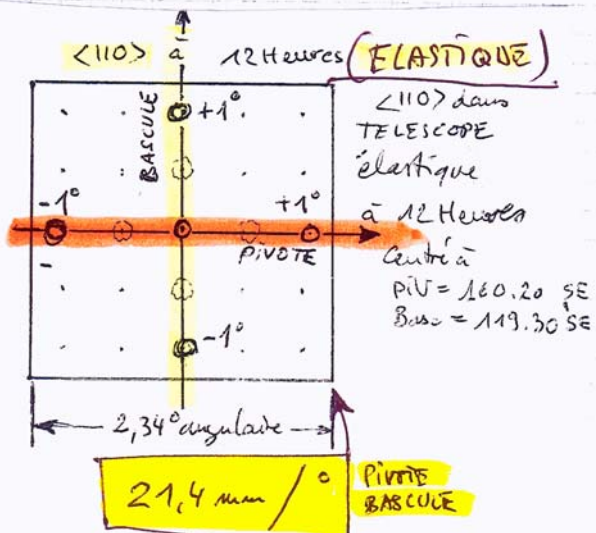 <110> à 12 Heures (ELASTIQUE)
BASCULE
+1°
<110> dans
TELESCOPE
élastique
à 12 Heures
Centré à
PIV = 160.20 SE
Basc = 119.30 SE
-1°
+1°
PIVOTE
-1°
2,34° angulaire
21,4 mm / °
PIVOTE
BASCULE